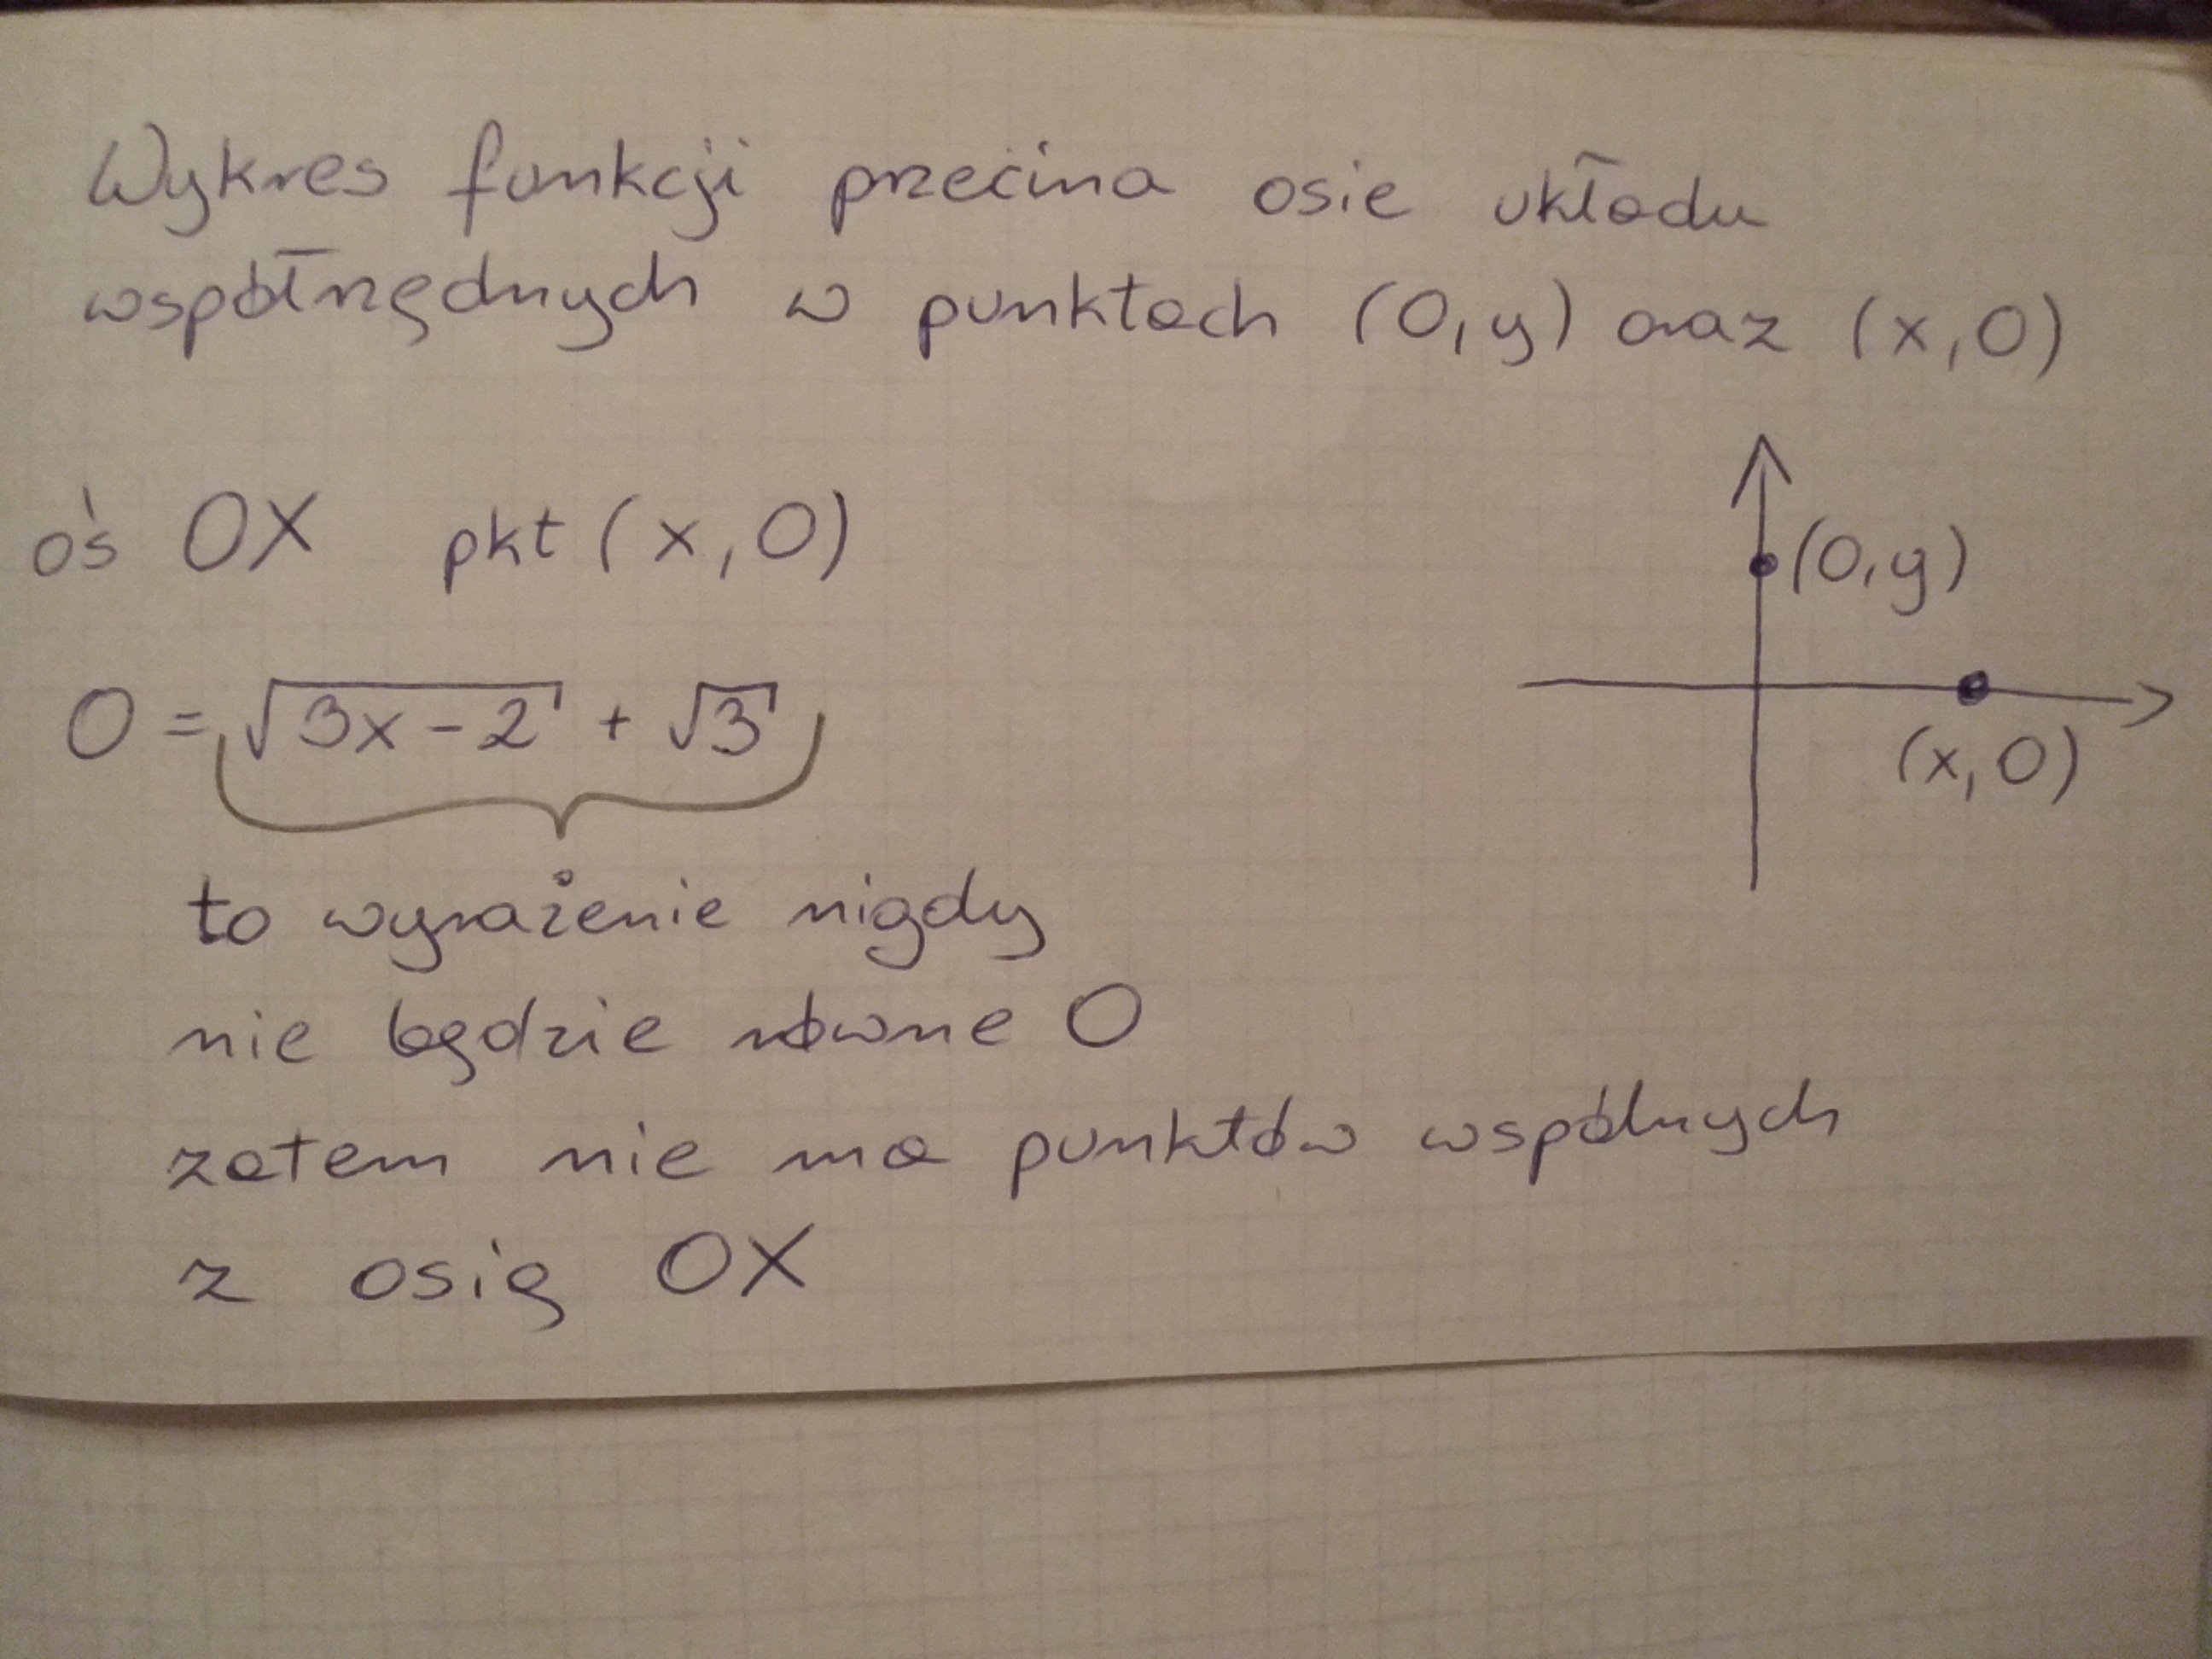 Wykres funkcji przecina osie układu
współrzędnych w punktach (0,y) oraz (x,0)
oś OX pkt (x,0)
(0,y)
0 = √3x-2 + √3
(x,0)
to wyrażenie nigdy
nie będzie równe 0
zatem nie ma punktów wspólnych
z osią OX